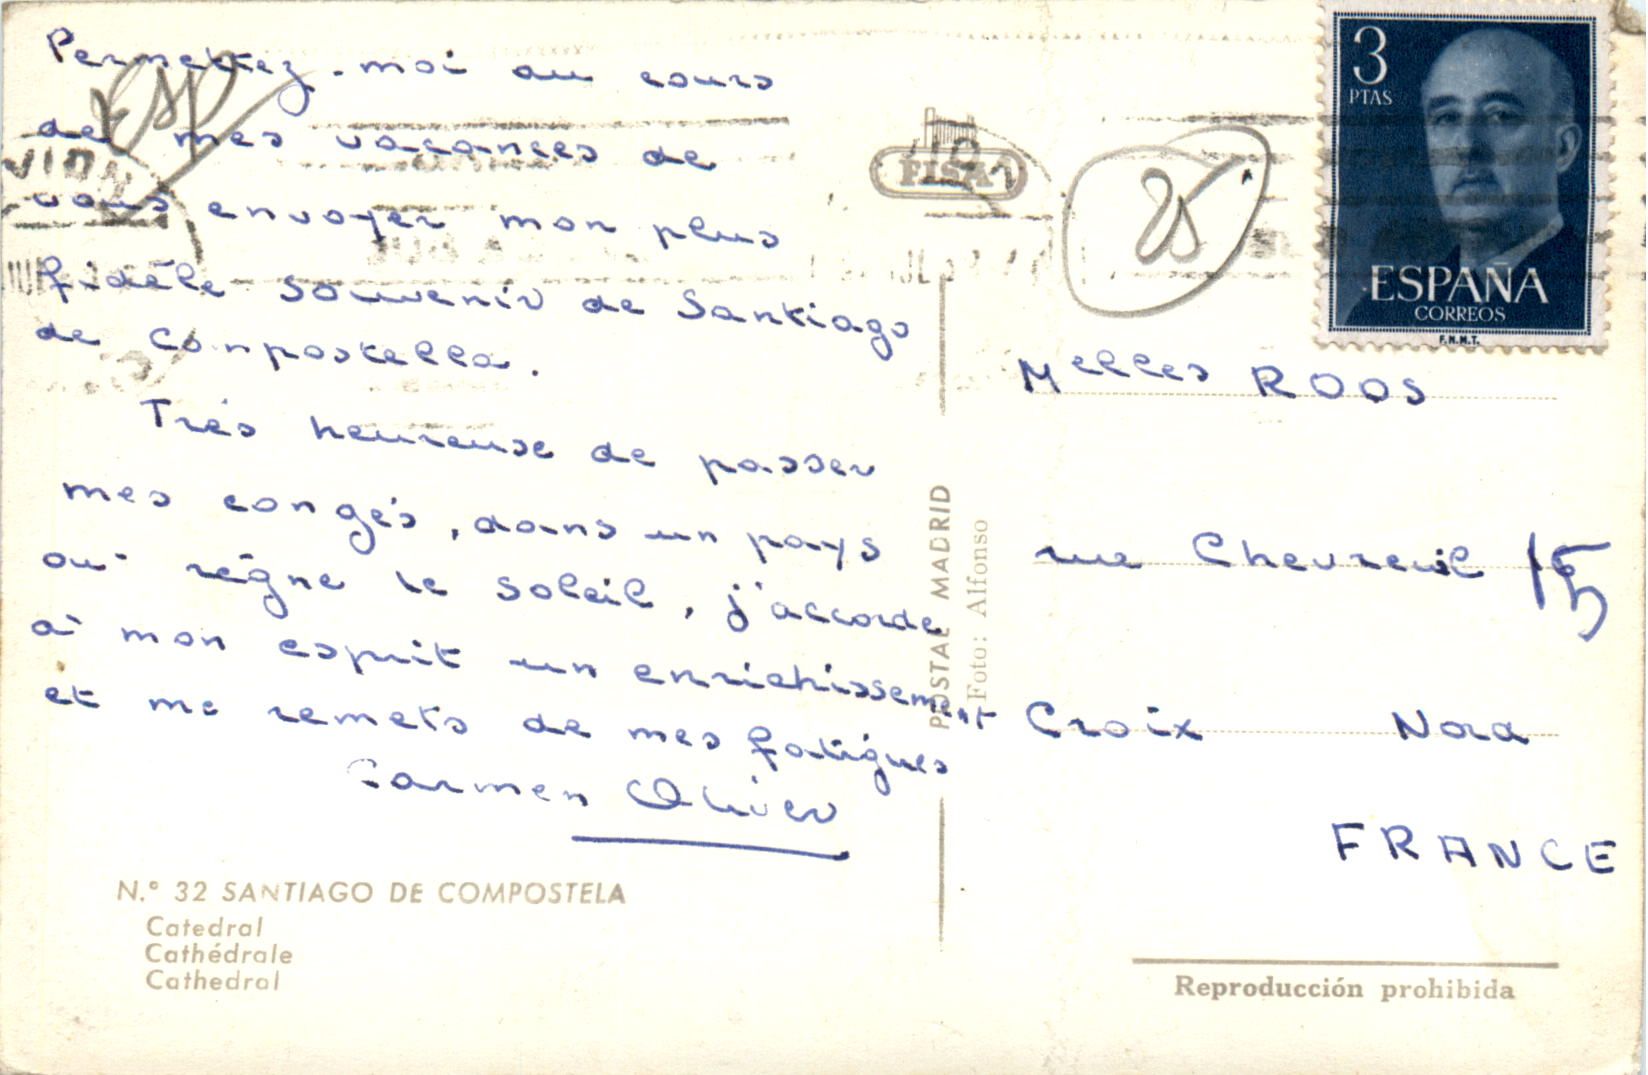 Permettez-moi au cours
de mes vacances de
vous envoyer mon plus
fidèle souvenir de Santiago
de Compostella.
Très heureuse de passer
mes congés, dans un pays
où règne le soleil, j'accorde
à mon esprit un enrichissement
et me remets de mes fatigues
Carmen Oliver
N.º 32 SANTIAGO DE COMPOSTELA
Catedral
Cathédrale
Cathedral
ESP
FISA
25
POSTAL MADRID
Foto: Alfonso
3
PTAS
ESPAÑA
CORREOS
F.N.M.T.
Melles ROOS
rue Chevreuil
Croix Nord
FRANCE
Reproducción prohibida